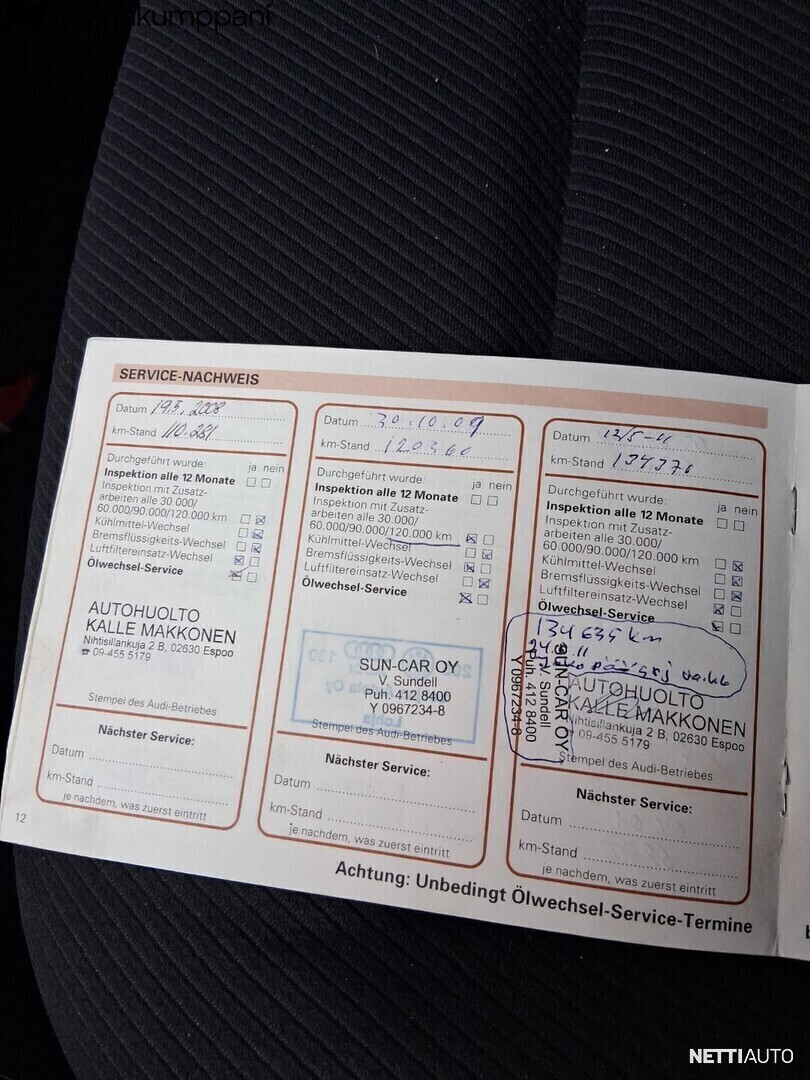 SERVICE-NACHWEIS
Datum 19.5.2008
km-Stand 110.281
Durchgeführt wurde:
ja nein
Inspektion alle 12 Monate
Inspektion mit Zusatz-
arbeiten alle 30.000/
60.000/90.000/120.000 km
Kühlmittel-Wechsel
Bremsflüssigkeits-Wechsel
Luftfiltereinsatz-Wechsel
Ölwechsel-Service
AUTOHUOLTO
KALLE MAKKONEN
Nihtisillankuja 2 B, 02630 Espoo
☎ 09-455 5179
Stempel des Audi-Betriebes
Nächster Service:
Datum
km-Stand
je nachdem, was zuerst eintritt
12
Datum 30.10.09
km-Stand 120360
Durchgeführt wurde:
ja nein
Inspektion alle 12 Monate
Inspektion mit Zusatz-
arbeiten alle 30.000/
60.000/90.000/120.000 km
Kühlmittel-Wechsel
Bremsflüssigkeits-Wechsel
Luftfiltereinsatz-Wechsel
Ölwechsel-Service
SUN-CAR OY
V. Sundell
Puh. 412 8400
Y 0967234-8
Stempel des Audi-Betriebes
Nächster Service:
Datum
km-Stand
je nachdem, was zuerst eintritt
Datum 12/5-11
km-Stand 134370
Durchgeführt wurde:
ja nein
Inspektion alle 12 Monate
Inspektion mit Zusatz-
arbeiten alle 30.000/
60.000/90.000/120.000 km
Kühlmittel-Wechsel
Bremsflüssigkeits-Wechsel
Luftfiltereinsatz-Wechsel
Ölwechsel-Service
134634 km
SUN-CAR OY
V. Sundell
Puh. 412 8400
Y 0967234-8
AUTOHUOLTO
KALLE MAKKONEN
Nihtisillankuja 2 B, 02630 Espoo
09-455 5179
Stempel des Audi-Betriebes
Nächster Service:
Datum
km-Stand
je nachdem, was zuerst eintritt
Achtung: Unbedingt Ölwechsel-Service-Termine
NETTIAUTO